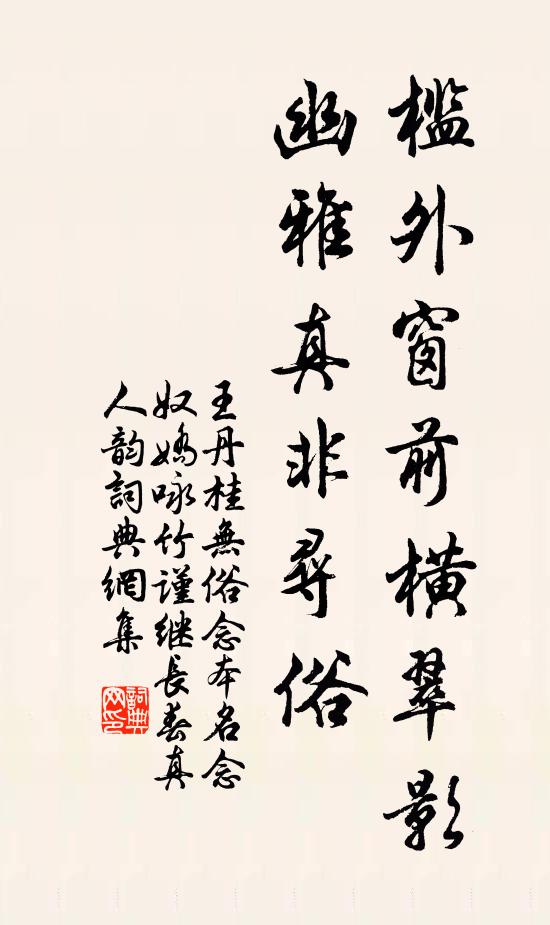 檻外窗前橫翠影
幽雅真非尋俗
王丹桂無俗念本名念
奴嬌咏竹謹继長春真
人韵詞典網集
詞典網印